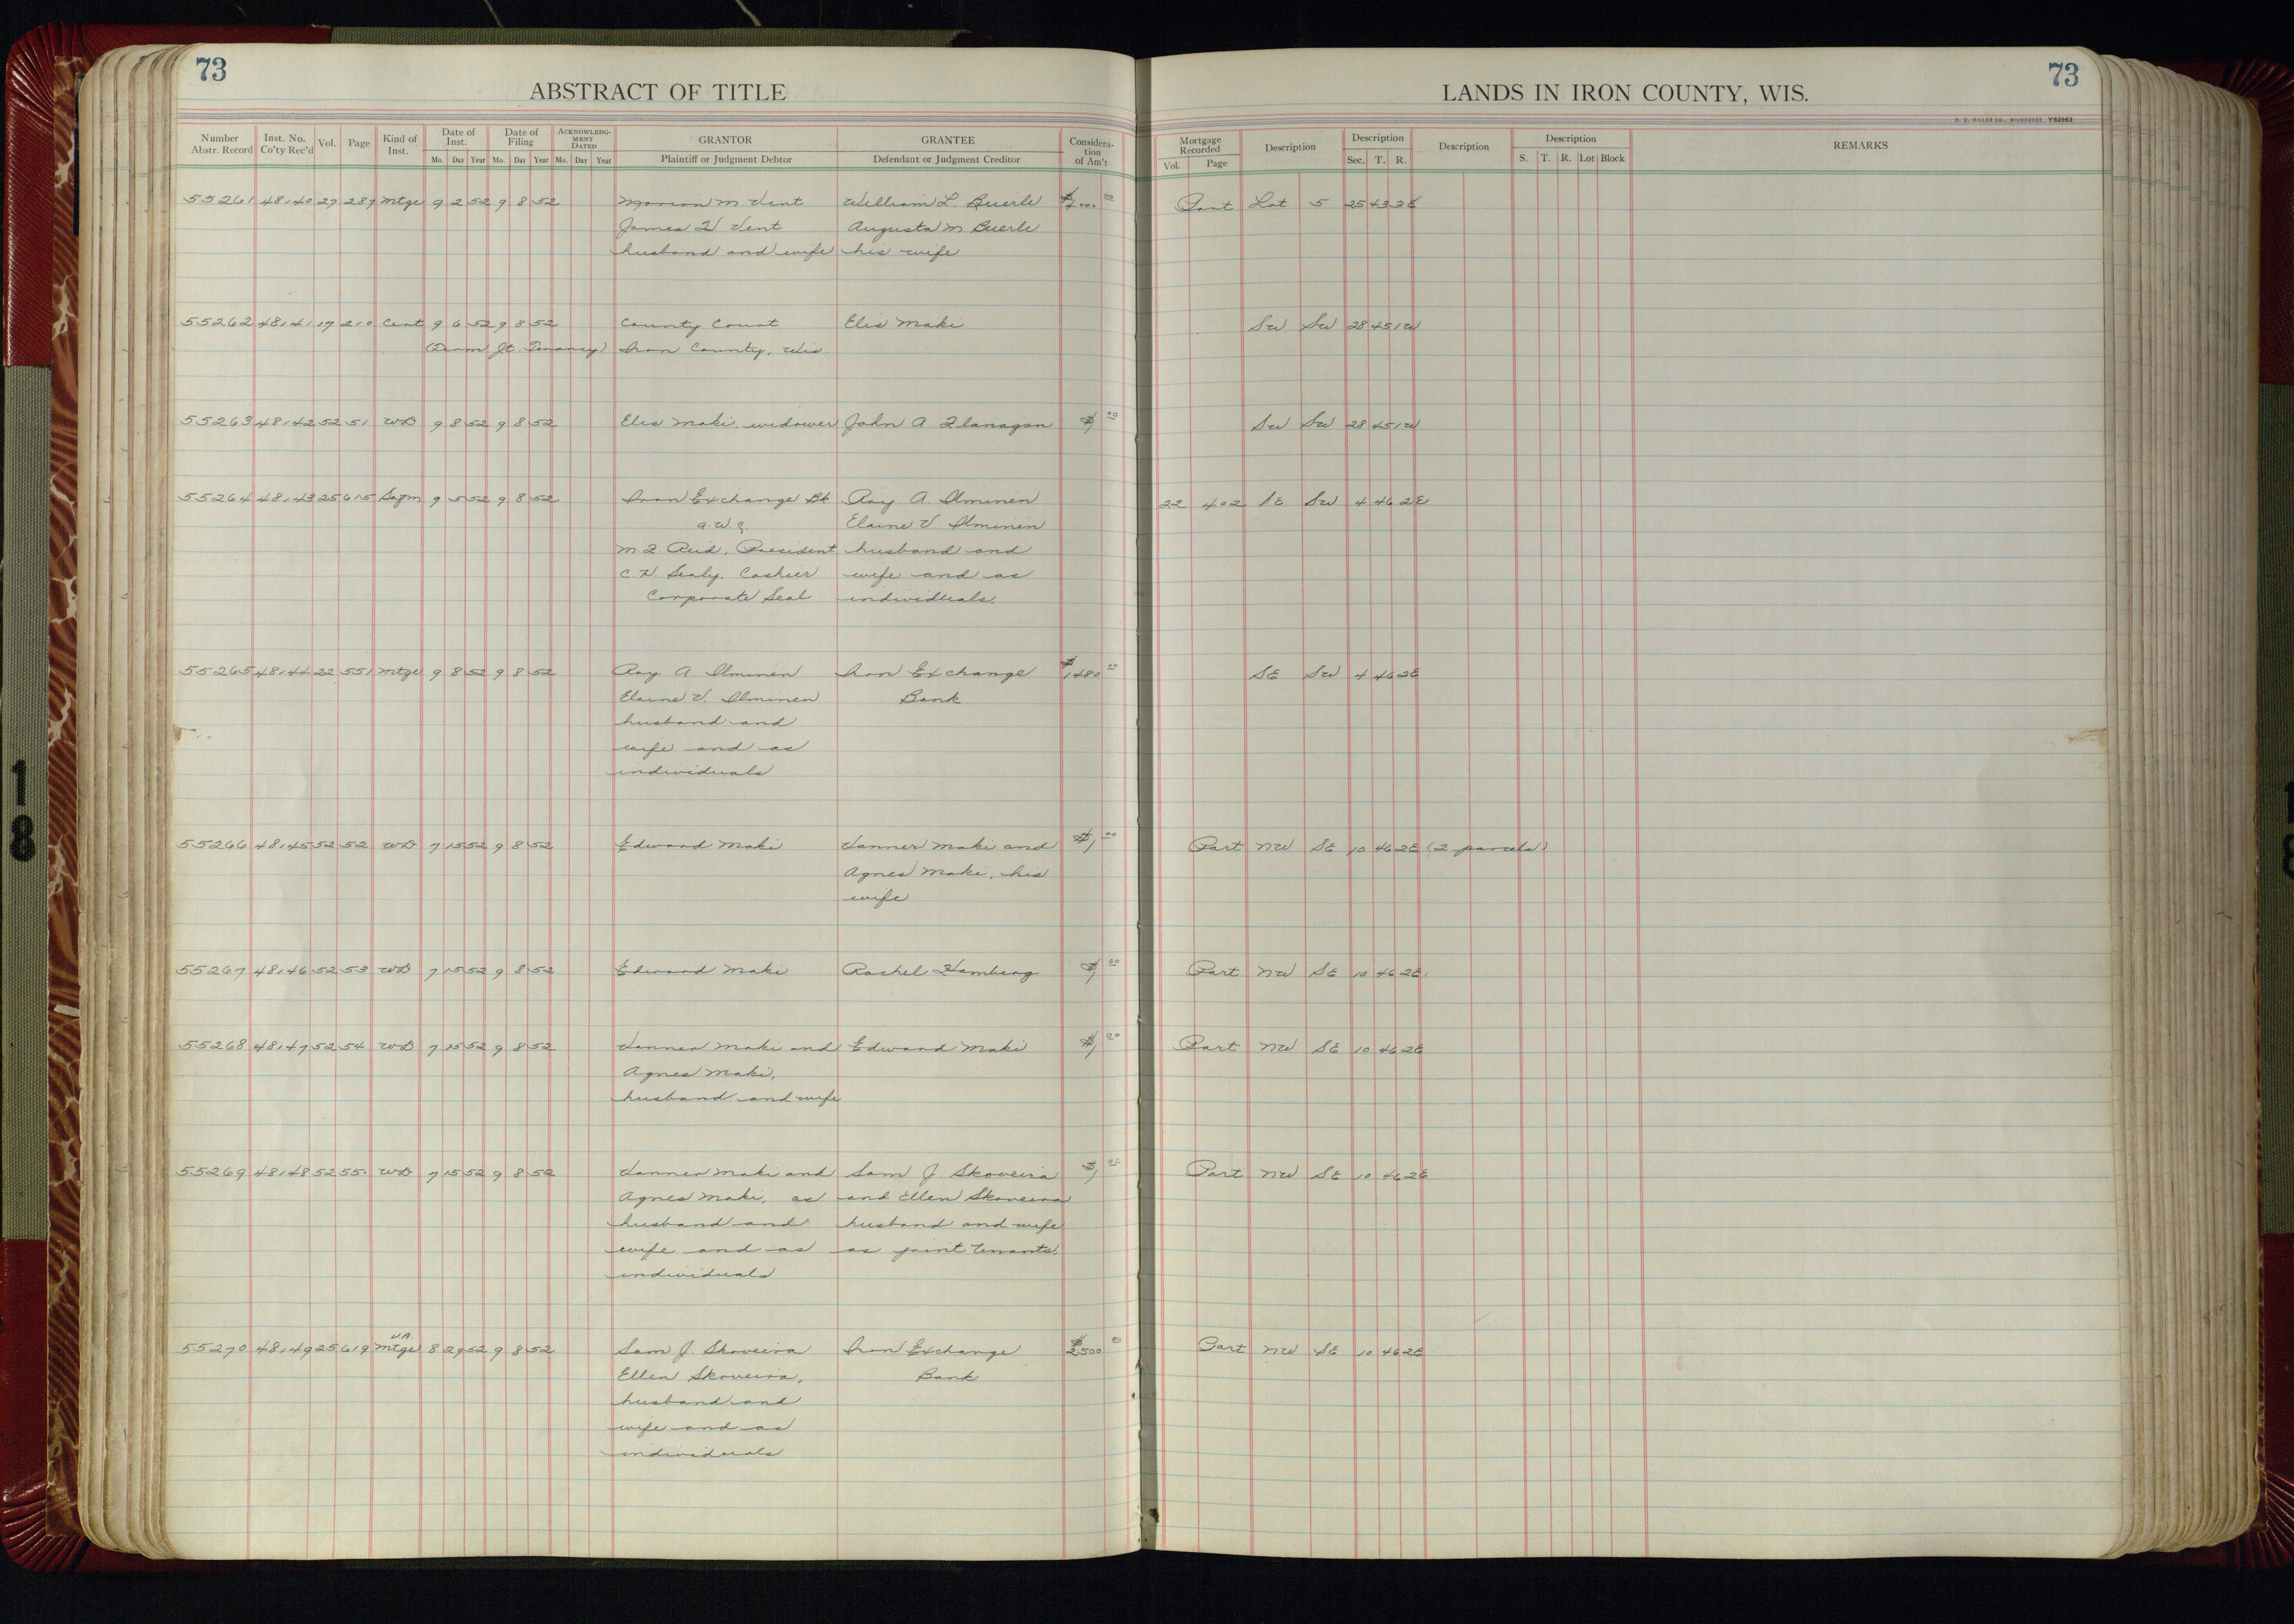 73
ABSTRACT OF TITLE
LANDS IN IRON COUNTY, WIS.
73
H. C. MILLER CO., MILWAUKEE Y62963
Number Abstr. Record Inst. No. Co'ty Rec'd Vol. Page Kind of Inst. Date of Inst. Mo. Day Year Date of Filing Mo. Day Year ACKNOWLEDG-MENT DATED Mo. Day Year GRANTOR Plaintiff or Judgment Debtor GRANTEE Defendant or Judgment Creditor Considera-tion of Am't Mortgage Recorded Vol. Page Description Description Sec. T. R. Description Description S. T. R. Lot Block REMARKS
55261 48140 27 287 Mtge 9 2 52 9 8 52 Marion M. Vent William L. Buerle Part Lot 5 25 43 3E
James H Vent Augusta M. Buerle
husband and wife his wife
55262 48141 17 210 Cert 9 6 52 9 8 52 County Court Elis Maki SW SW 28 45 1W
(Term Jt. Tenancy) Iron County, Wis
55263 48142 52 51 WD 9 8 52 9 8 52 Elis Maki, widower John A Flanagan $1 00 SW SW 28 45 1W
55264 48143 25 615 Satfm 9 5 52 9 8 52 Iron Exchange Bk Roy A. Ilminen 22 402 SE SW 4 46 2E
Elaine V Ilminen
M. F. Reid, President husband and
C. H. Sealy, Cashier wife and as
Corporate Seal individuals.
55265 48144 22 551 Mtge 9 8 52 9 8 52 Roy A Ilminen Iron Exchange $1480 00 SE SW 4 46 2E
Elaine V. Ilminen Bank
husband and
wife and as
individuals
55266 48145 52 52 WD 7 15 52 9 8 52 Edward Maki Vanner Maki and $1 00 Part NW SE 10 46 2E (2 parcels)
Agnes Maki, his
wife
55267 48146 52 53 WD 7 15 52 9 8 52 Edward Maki Rachel Hamberg $1 00 Part NW SE 10 46 2E
55268 48147 52 54 WD 7 15 52 9 8 52 Vanner Maki and Edward Maki $1 00 Part NW SE 10 46 2E
Agnes Maki,
husband and wife
55269 48148 52 55 WD 7 15 52 9 8 52 Vanner Maki and Sam J. Skoveira $1 00 Part NW SE 10 46 2E
Agnes Maki, as and Ellen Skoveira
husband and husband and wife
wife and as as joint tenants.
individuals
V.A.
55270 48149 25 619 Mtge 8 29 52 9 8 52 Sam J. Skoveira Iron Exchange $2500 00 Part NW SE 10 46 2E
Ellen Skoveira, Bank
husband and
wife and as
individuals
18